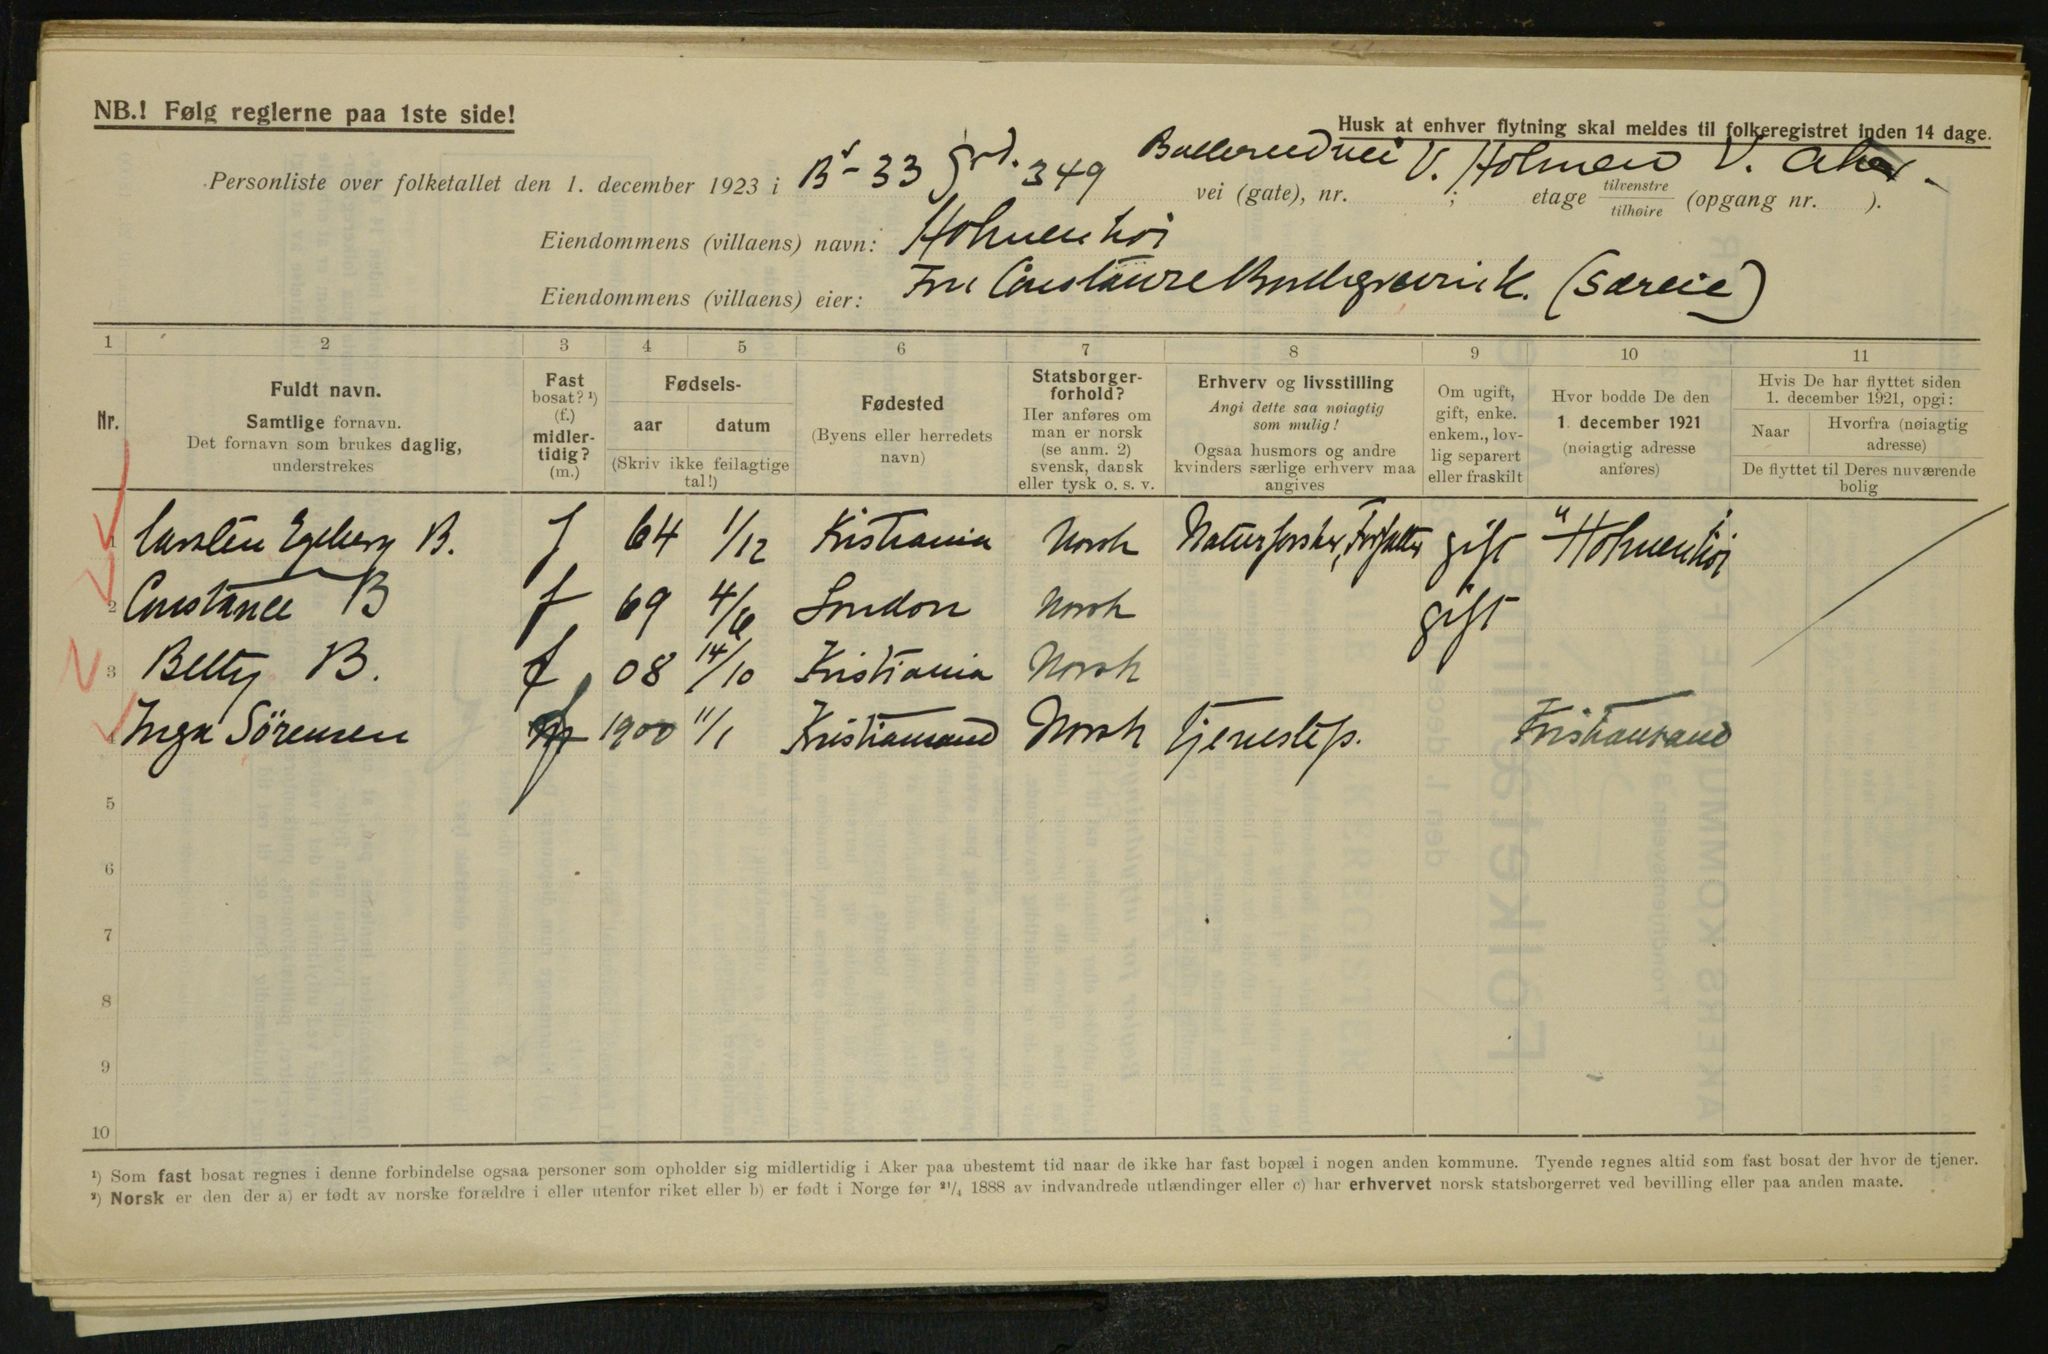 NB.! Følg reglerne paa 1ste side!
Husk at enhver flytning skal meldes til folkeregistret inden 14 dage.
Personliste over folketallet den 1. december 1923 i B - 33 349 vei (gate), nr. V. Holmen V. Aker. ; etage tilvenstre tilhøire (opgang nr. ).
Eiendommens (villaens) navn: Holmenhøi
Eiendommens (villaens) eier: Fru Constance (Særeie)
1 2 3 4 5 6 7 8 9 10 11
Nr.
Fuldt navn.
Samtlige fornavn.
Det fornavn som brukes daglig,
understrekes
Fast
bosat? ¹)
(f.)
midler-
tidig?
(m.)
Fødsels-
aar datum
(Skriv ikke feilagtige
tal!)
Fødested
(Byens eller herredets
navn)
Statsborger-
forhold?
Her anføres om
man er norsk
(se anm. 2)
svensk, dansk
eller tysk o. s. v.
Erhverv og livsstilling
Angi dette saa nøiagtig
som mulig!
Ogsaa husmors og andre
kvinders særlige erhverv maa
angives
Om ugift,
gift, enke.
enkem., lov-
lig separert
eller fraskilt
Hvor bodde De den
1. december 1921
(nøiagtig adresse
anføres)
Hvis De har flyttet siden
1. december 1921, opgi:
Naar
Hvorfra (nøiagtig
adresse)
De flyttet til Deres nuværende
bolig
1 Carsten Egeberg B. f 64 1/12 Kristiania Norsk Naturforsker, Forfatter gift "Holmenhøi
2 Constance B f 69 4/6 London Norsk gift
3 Betty B. f 08 14/10 Kristiania Norsk
4 Inga Sörensen f 1900 11/1 Kristiansand Norsk tjenestep. Kristiansand
5
6
7
8
9
10
¹) Som fast bosat regnes i denne forbindelse ogsaa personer som opholder sig midlertidig i Aker paa ubestemt tid naar de ikke har fast bopæl i nogen anden kommune. Tyende regnes altid som fast bosat der hvor de tjener.
²) Norsk er den der a) er født av norske forældre i eller utenfor riket eller b) er født i Norge før ²¹/₄ 1888 av indvandrede utlændinger eller c) har erhvervet norsk statsborgerret ved bevilling eller paa anden maate.